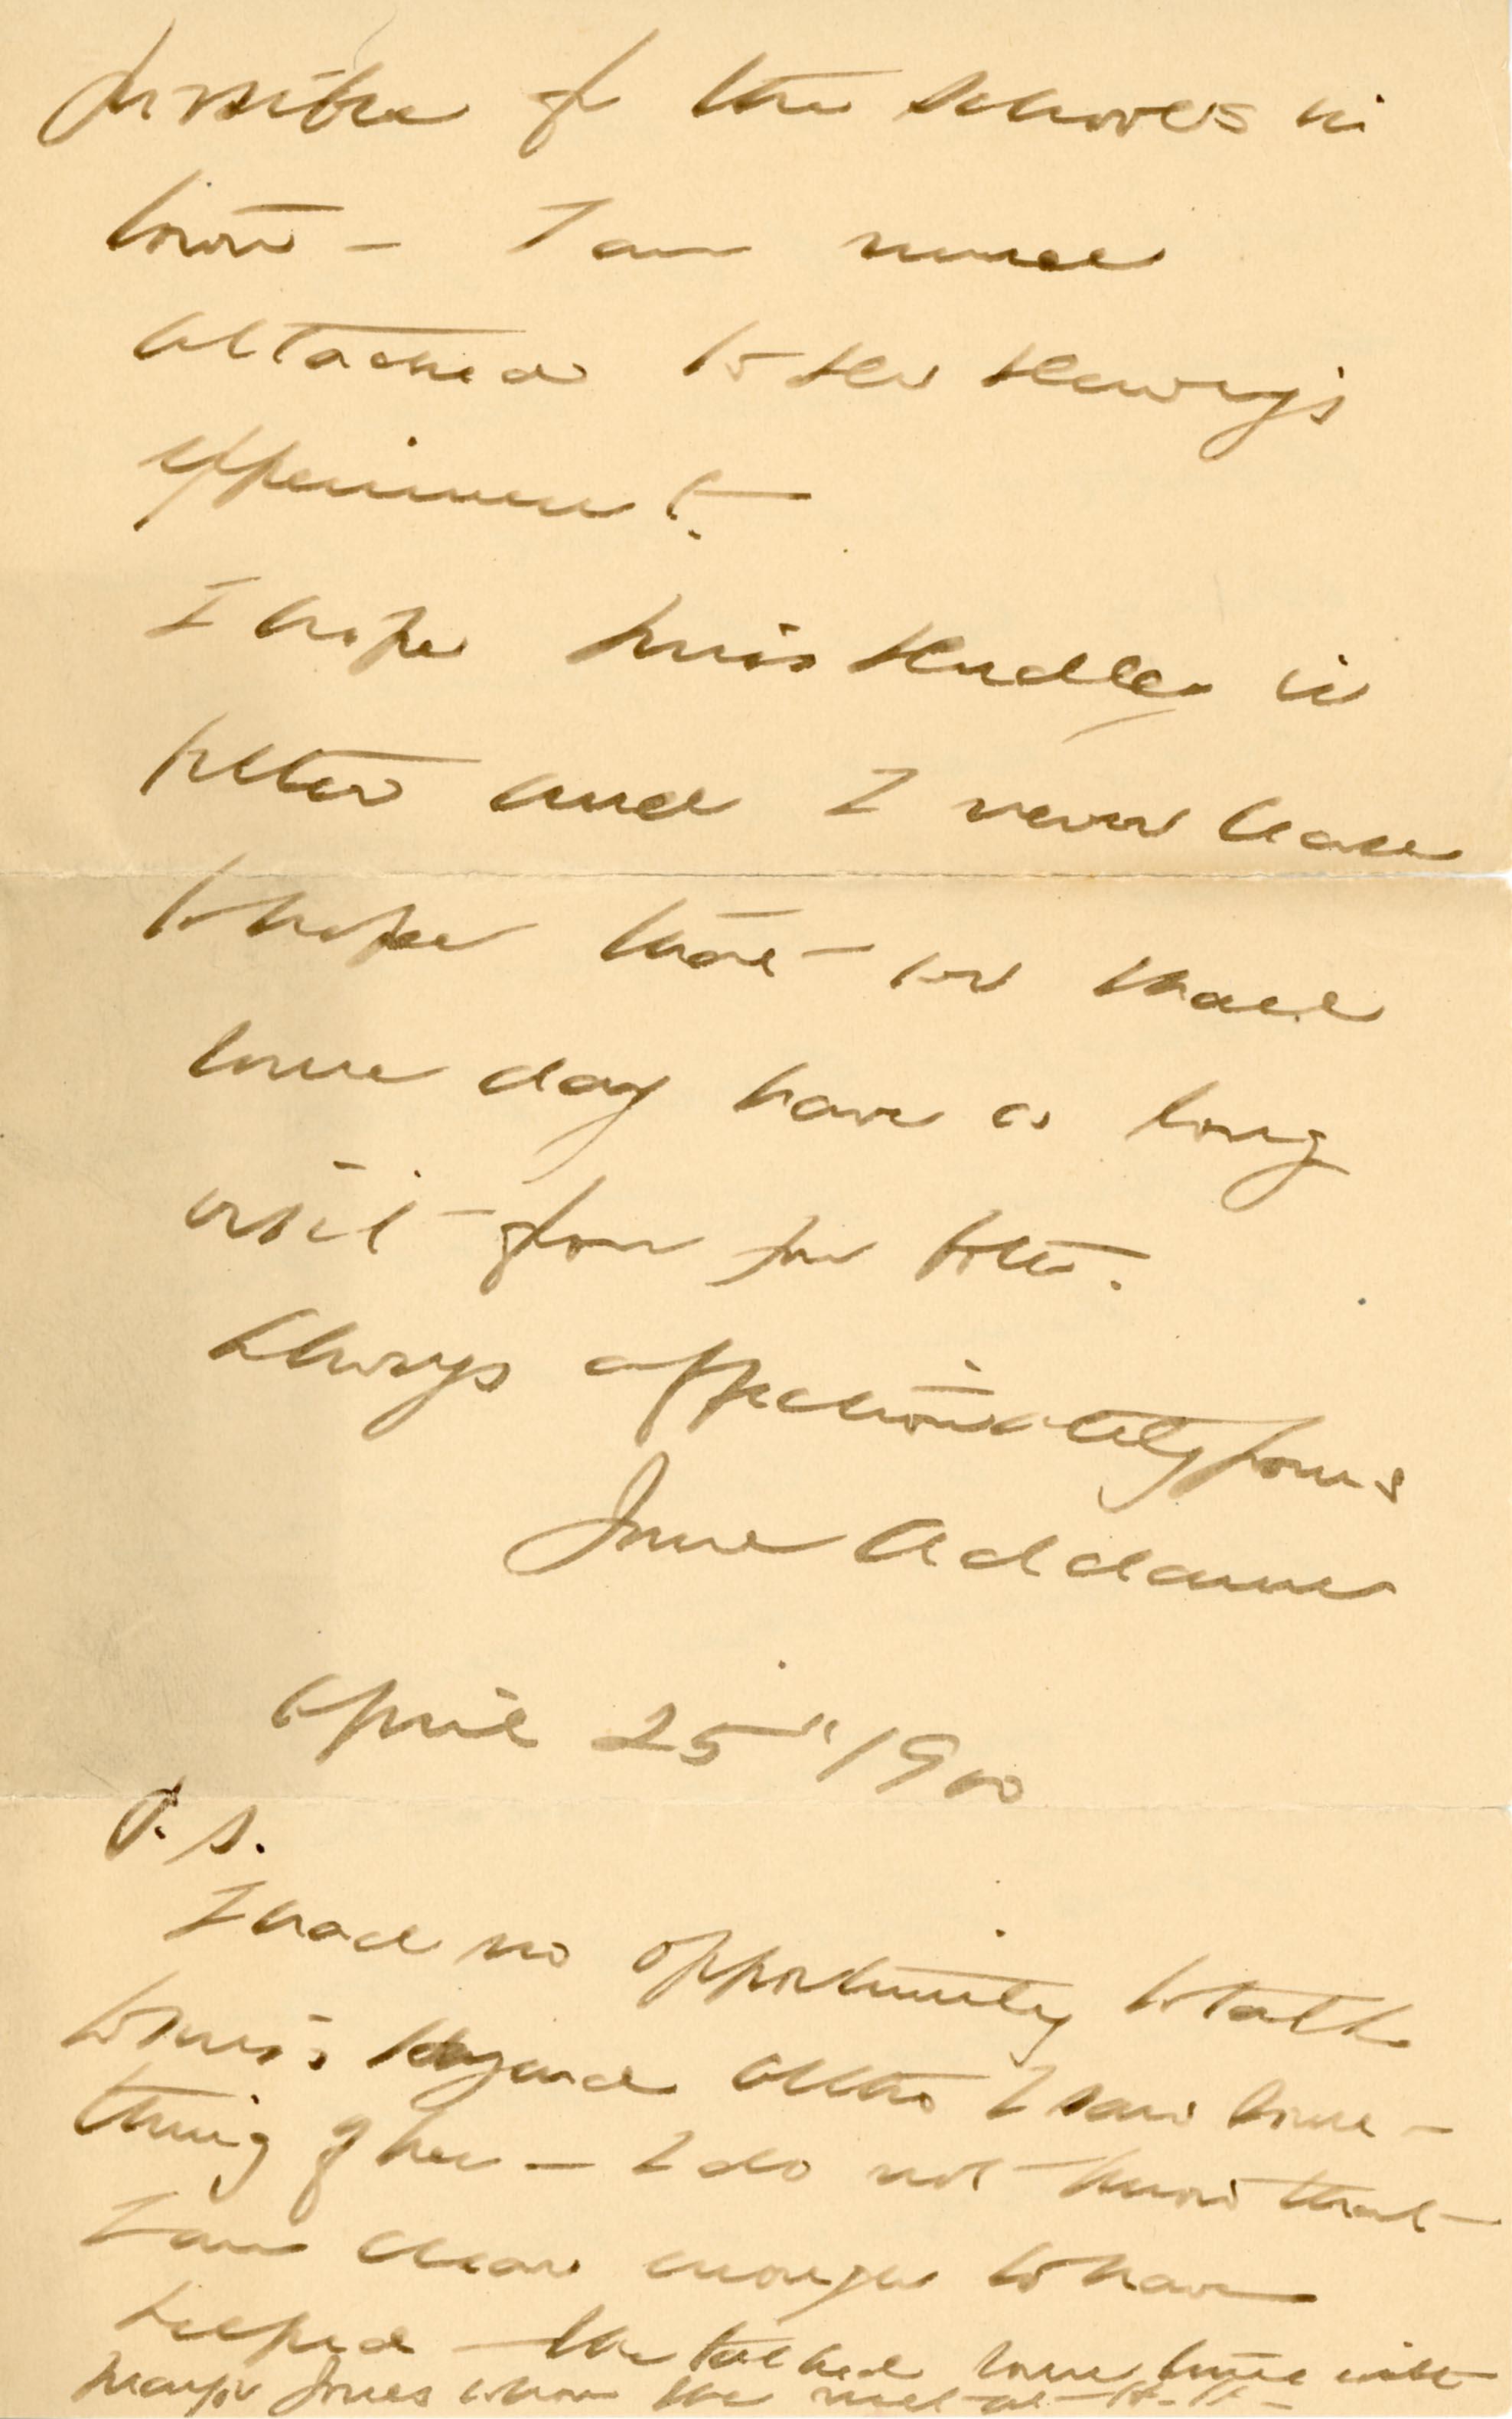 possible of the schools in
town – I am much
attached to Mr Dewey's
experiment.
I hope Miss Dudley is
better and I never cease
to hope that we shall
some day have a long
visit from you both.
Always affectionately yours
Jane Addams
April 25" 1900
P. S.
I had no opportunity to talk
to Miss altho I saw some–
thing of her – I do not know that
I am clear enough to have
helped – She talked some time with
Mayor Jones whom she met at H.H.